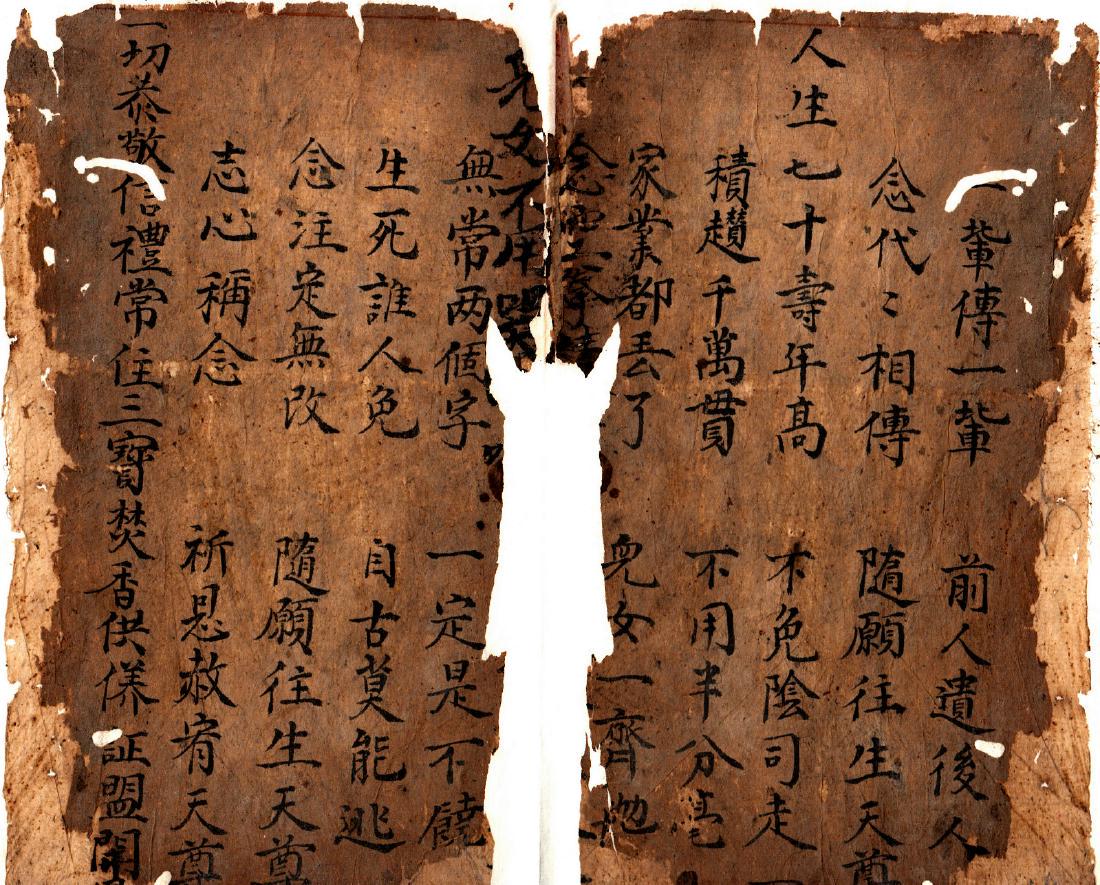 一輩傳一輩 前人遺後人
念代〻相傳 隨願往生天尊
人生七十壽年高 不免陰司走
積趲千萬貫 不用半分毫
家業都丟了 兒女一齊抛
念
兒女不用哭
無常两個字 一定是不饒
生死誰人免 自古莫能逃
念注定無改 隨願往生天尊
志心稱念 祈恩赦宥天尊
一切恭敬信禮常住三寳焚香供養証盟開